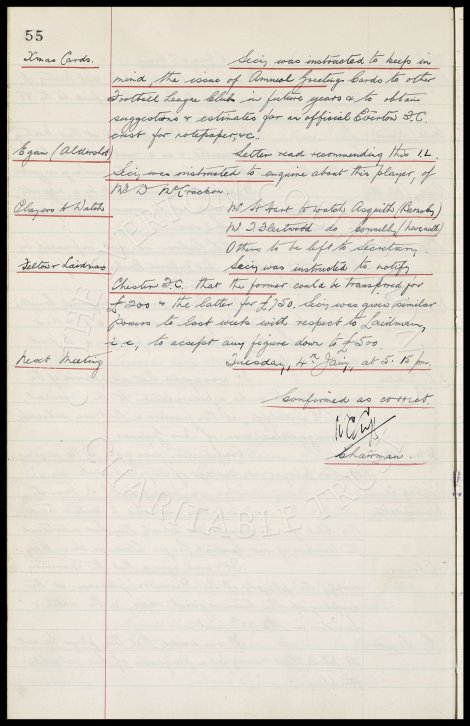 55
Xmas Cards.
Secy. was instructed to keep in
mind the issue of Annual Greetings Cards to other
Football League Clubs in future years & to obtain
suggestions & estimates for an official Everton F.C.
crest for notepaper, &c.
Egan (Aldershot)
Letter read recommending this I.L.
Secy. was instructed to enquire about this player, of
Mr. D. McCracken.
Players to Watch
Mr. to watch Asquith (Barnsley)
Mr. T. Fleetwood do. Connelly (Newcastle)
Others to be left to Secretary.
Felton & Laidman
Secy. was instructed to notify
Chester F.C. that the former could be transferred for
£200 & the latter for £750. Secy. was given similar
powers to last week with respect to Laidman,
i.e., to accept any figure down to £500.
Next Meeting
Tuesday, 4th Jany., at 5.15 pm.
Confirmed as correct.
Chairman.
CHARITABLE TRUST